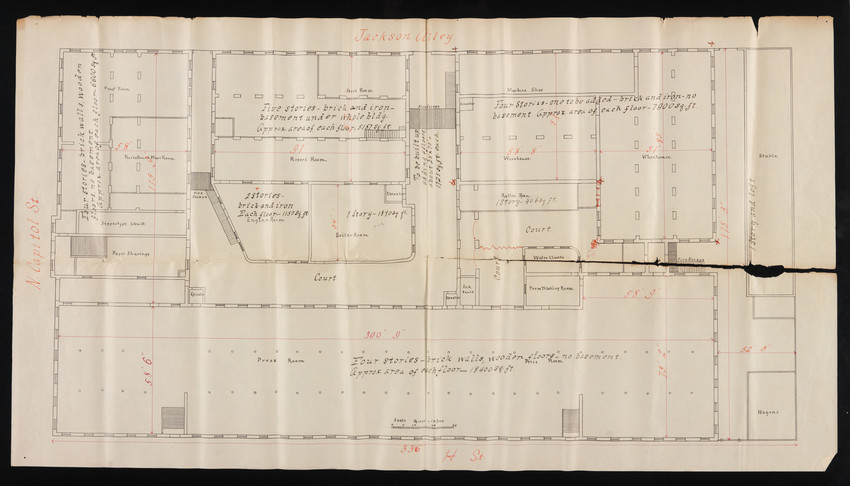 Jackson Alley
N Capitol St.
Four stories - brick walls, wooden
floors, no basement.
Approx area of each floor - 6600 sq ft.
Proof Room
58'
Stereotype Vault
Paper Shavings
Fire Escape
Elevator
Five stories - brick and iron -
basement under whole bldg.
Approx area of each floor - 5187 sq. ft.
91
Record Room.
2 Stories -
brick and iron
Each floor - 1150 sq. ft
Engine Room
1 Story - 1890 sq ft.
Boiler Room
Elevator
Court
To be built up,
Machine Shop
Four Stories - one to be added - brick and iron - no
basement Approx area of each floor - 7900 sq. ft.
58' 8
Warehouse
Warehouse
Roller Room
1 Story - 406 sq. ft.
Court
Court
Water Closets
Form Washing Room
Fire Escape
Elevator
58' 9"
Stable
1 Story and loft
Wagons
300' 9"
58' 6"
Press Room
Four stories - brick walls, wooden floors - no basement.
Approx area of each floor - 18400 sq. ft.
Scale
336'
H St.